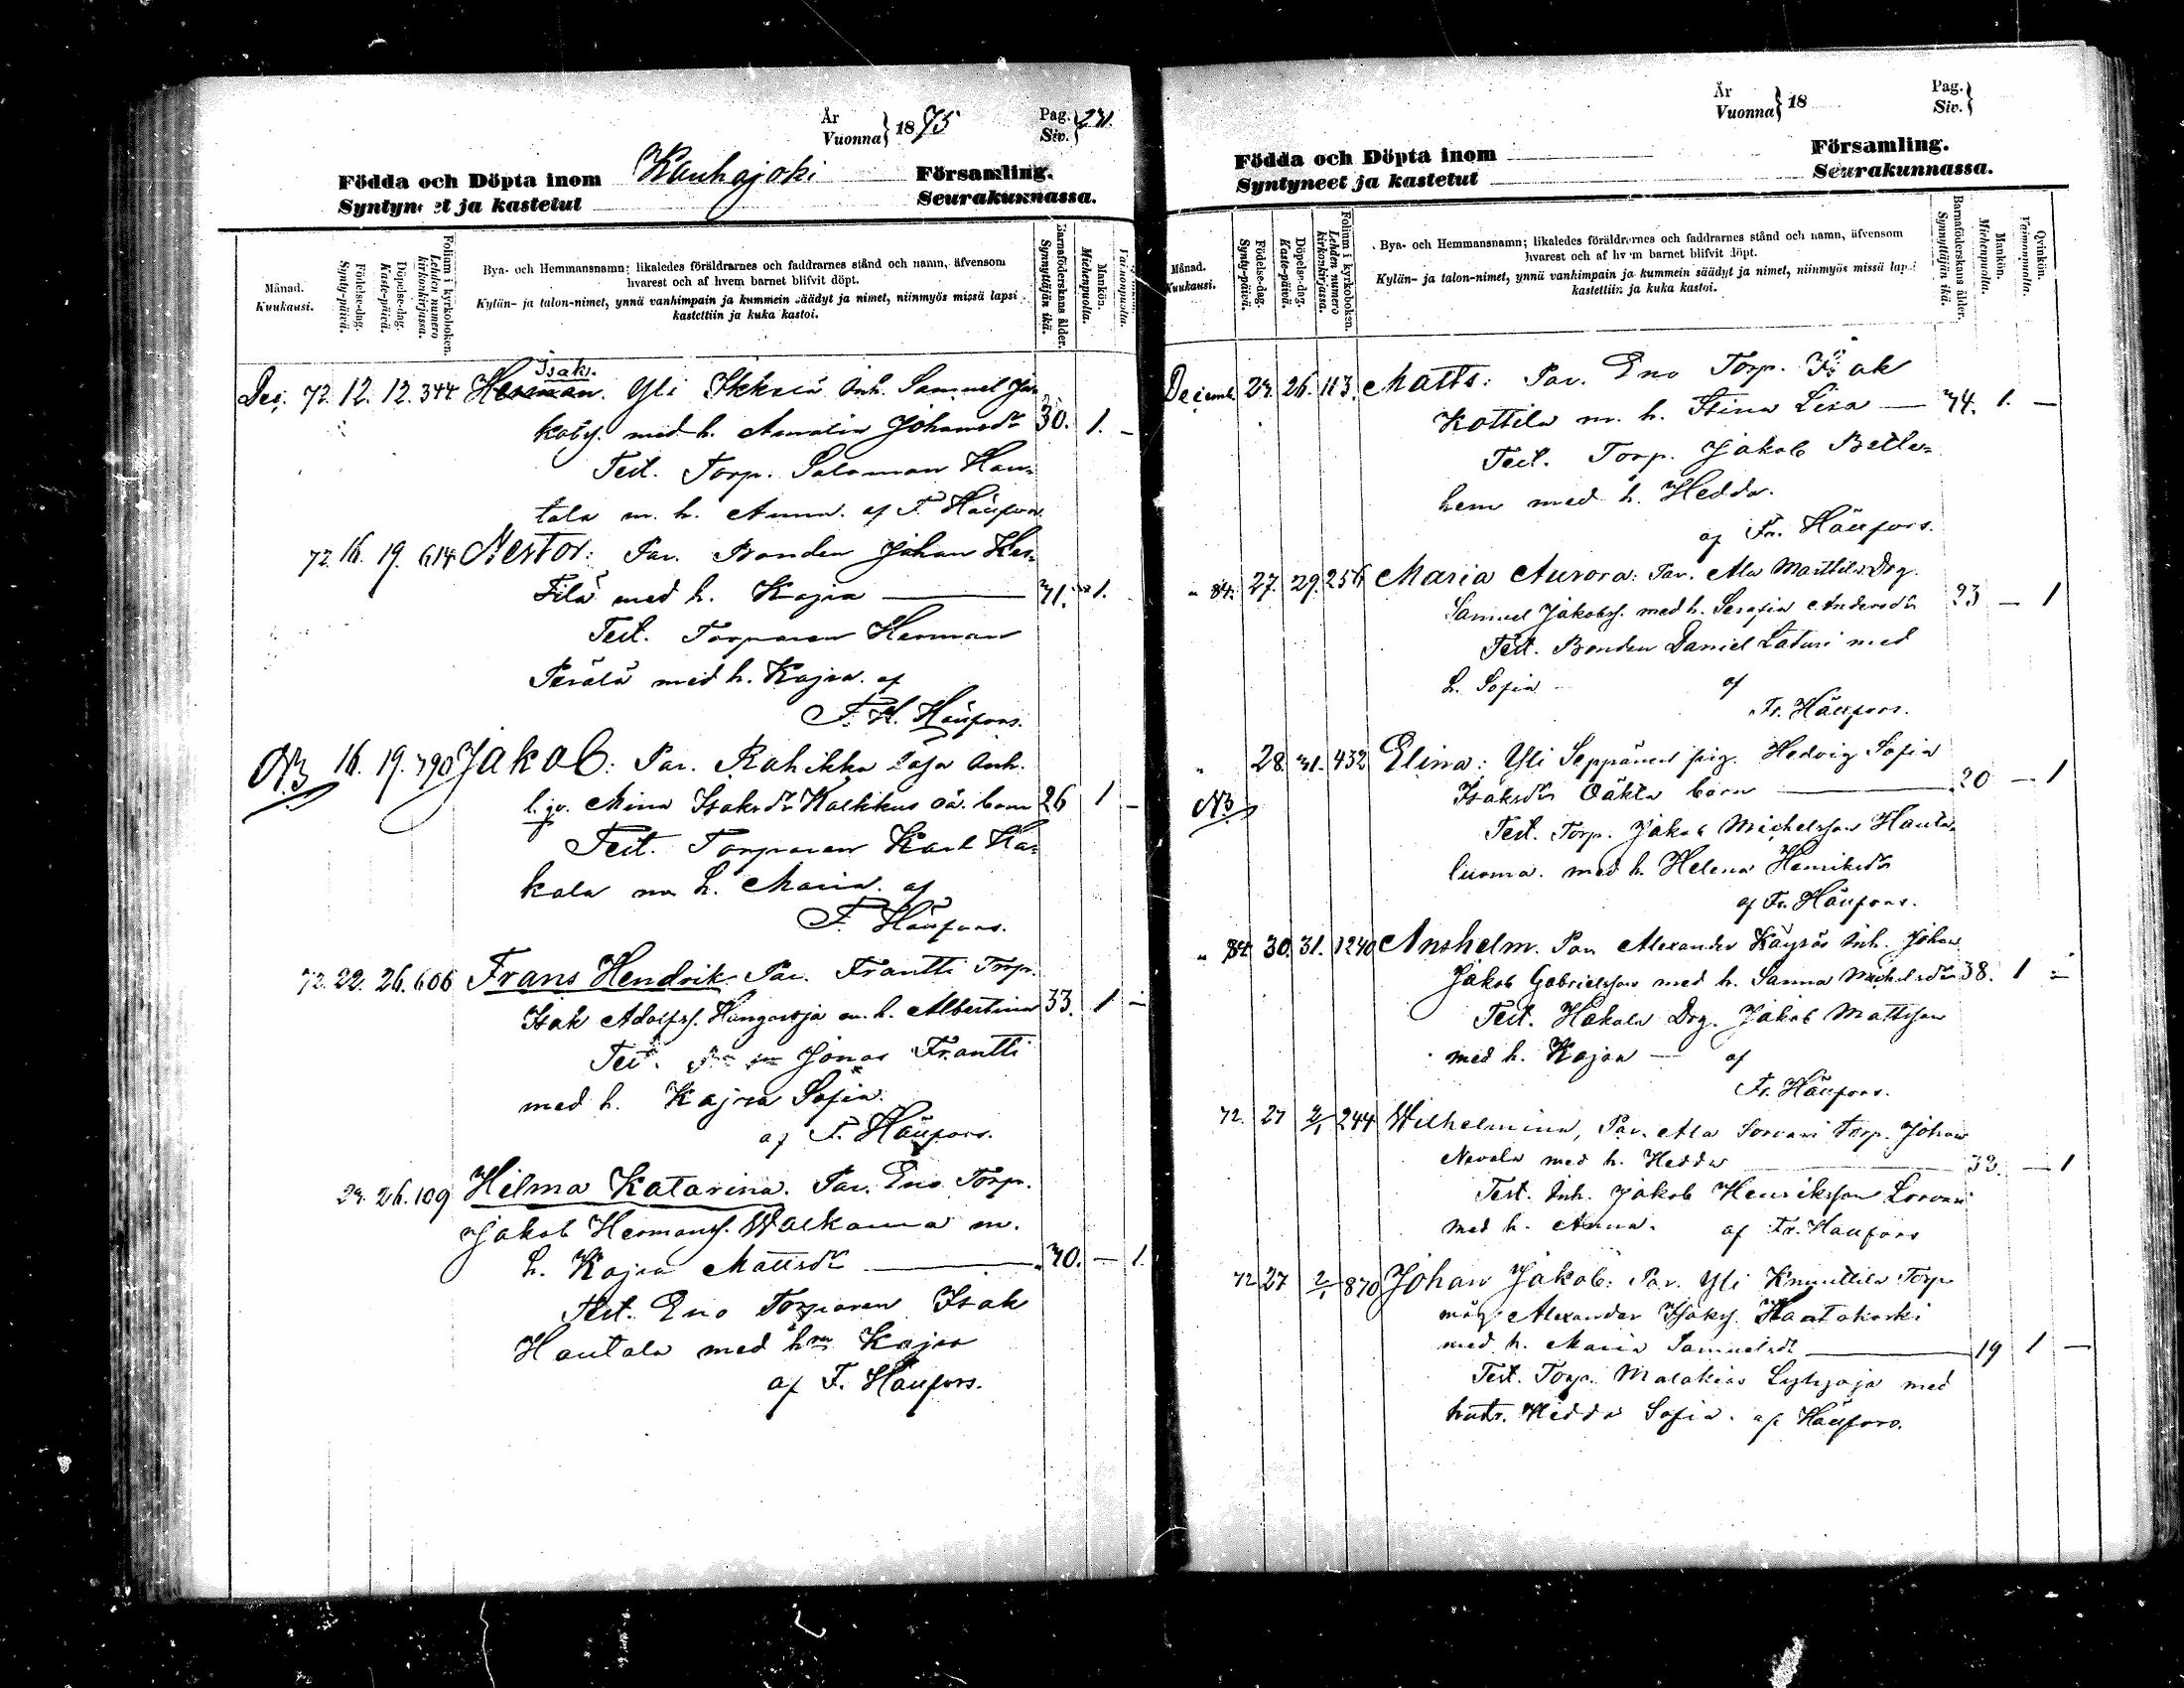 År
Vuonna } 1875
Pag.
Siv. } 231.
Födda och Döpta inom Kauhajoki Församling.
Syntyneet ja kastetut Seurakunnassa.
Månad.
Kuukausi.
Födelse-dag.
Synty-päivä.
Döpelse-dag.
Kaste-päivä.
Folium i kyrkoboken.
Lehden numero kirkonkirjassa.
Bya- och Hemmansnamn; likaledes föräldrarnes och faddrarnes stånd och namn, äfvensom
hvarest och af hvem barnet blifvit döpt.
Kylän- ja talon-nimet, ynnä vanhimpain ja kummein säädyt ja nimet, niinmyös missä lapsi
kastettiin ja kuka kastoi.
Barnaföderskans ålder.
Synnyttäjän ikä.
Mankön.
Miehenpuolta.
Vaimonpuolta.
Isak.
Dec. 72. 12. 12. 344 Herman. Yli Ikkelä Inh. Samuel Ja-
kobs. med h. Amalia Johansdr 30. 1. -
Test. Torp. Salomon Hau-
tala m. h. Anna. af F. Häufors.
72. 16. 19. 614 Nestor: Par. Bonden Johan Kes-
Filä med h. Kajsa 31. 1.
Test. Torparen Herman
Perälä med h. Kajsa. af
F. H. Häufors.
NB 16. 19. 790 Jakob: Par. Rahikka Inh.
Mina Isaksdr Kalkkus oä. barn 26 1 -
Test. Torparen Karl Ha-
kala m h. Maria. af
F. Häufors.
72. 22. 26. 606 Frans Hendrik. Par. Frantti Torp.
Isak Adolfs. Hangasoja m. h. Albertina 33. 1 -
Test. Jonas Frantti
med h. Kajsa Sofia.
af F. Häufors.
23. 26. 109 Hilma Katarina. Par. Eno Torp.
Jakob Hermans. Walkama m.
h. Kajsa Mattsdr 30. - 1.
Test. Eno Torparen Isak
Hautala med hu Kajsa
af F. Häufors.
År
Vuonna } 18
Pag.
Siv. }
Födda och Döpta inom Församling.
Syntyneet ja kastetut Seurakunnassa.
Månad.
Kuukausi.
Födelse-dag.
Synty-päivä.
Döpelse-dag.
Kaste-päivä.
Folium i kyrkoboken.
Lehden numero kirkonkirjassa.
Bya- och Hemmansnamn; likaledes föräldrarnes och faddrarnes stånd och namn, äfvensom
hvarest och af hvem barnet blifvit döpt.
Kylän- ja talon-nimet, ynnä vanhimpain ja kummein säädyt ja nimet, niinmyös missä lapsi
kastettiin ja kuka kastoi.
Barnaföderskans ålder.
Synnyttäjän ikä.
Mankön.
Miehenpuolta.
Qvinkön.
Vaimonpuolta.
Decemb. 23. 26. 113. Matts: Par. Eno Torp. Isak
Kottila m. h. Stina Lisa 34. 1. -
Test. Torp. Jakob Betle-
hem med h. Hedda.
af Fr. Häufors.
" 84. 27. 29. 256 Maria Aurora: Par. Ala Marttila Drg.
Samuel Jakobs. med h. Serafia Andersdr 23 - 1
Test. Bonden Daniel Laturi med
h. Sofia af
Fr. Häufors.
" 28. 31. 432 Elina: Yli Seppänen pig. Hedvig Sofia
NB. Isaksdr Oäkta barn 20 - 1
Test. Torp. Jakob Michelsson Hauta-
luoma. med h. Helena Henriksdr
af Fr. Häufors.
" 84. 30. 31. 1240 Anshelm. Par. Alexander Käyräs Inh. Johan
Jakob Gabrielsson med h. Sanna Michelsdr 38. 1 -
Test. Hakala Drg. Jakob Mattsson
med h. Kajsa af
Fr. Häufors.
72. 27 2/1 244 Wilhelmina, Par. Ala Sorvari Torp. Johan
Nevala med h. Hedda 33. - 1
Test. Inh. Jakob Henriksson Sorvari
med h. Anna. af Fr. Haufors
72 27 2/1 870 Johan Jakob: Par. Yli Knuuttila Torp
måg Alexander Isaks. Hautakoski
med h. Maria Samuelsdr 19 1 -
Test. Torp. Malakias Lylyoja med
hustr. Hedda Sofia. af Häufors.